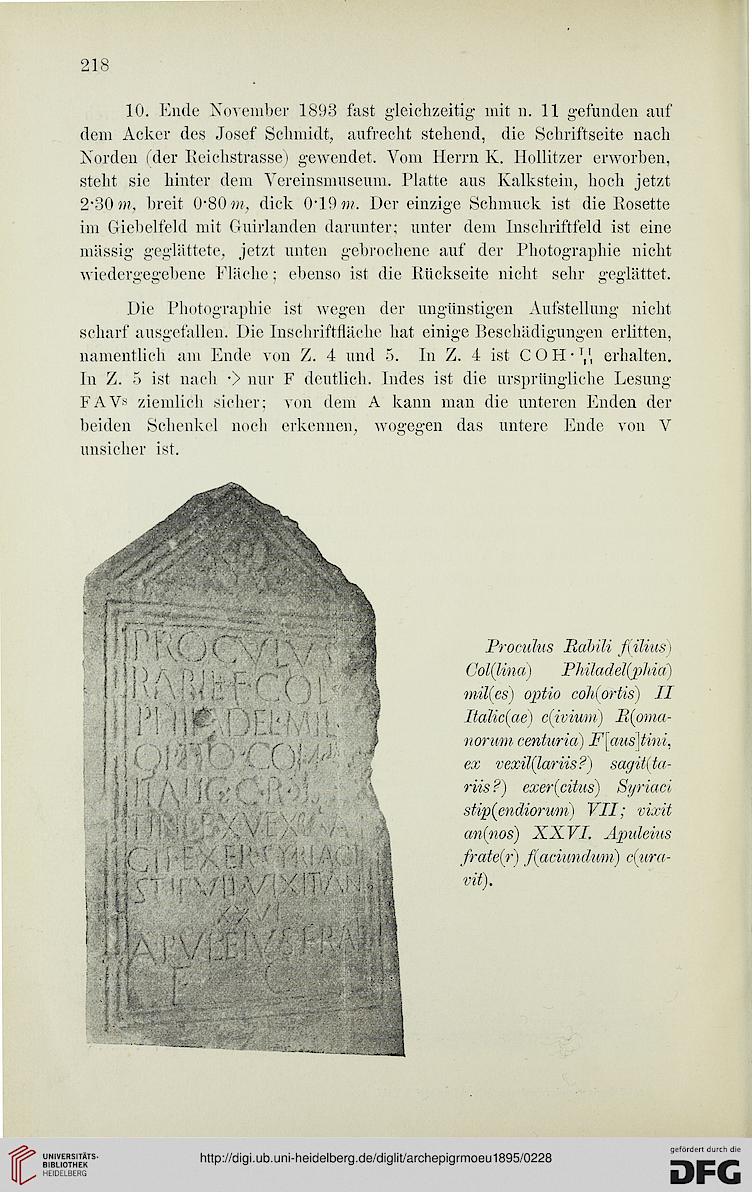 218
10. Ende November 1893 fast gleichzeitig mit n. 11 gefunden auf
dem Acker des Josef Schmidt, aufrecht stehend, die Schriftseite nach
Norden (der Reichstrasse) gewendet. Vom Herrn K. Hollitzer erworben,
steht sie hinter dem Vereinsmuseum. Platte aus Kalkstein, hoch jetzt
2·30 m, breit 0·80 m, dick 0·19 m. Der einzige Schmuck ist die Rosette
im Giebelfeld mit Guirlanden darunter; unter dem Inschriftfeld ist eine
mässig geglättete, jetzt unten gebrochene auf der Photographie nicht
wiedergegebene Fläche; ebenso ist die Rückseite nicht sehr geglättet.
Die Photographie ist wegen der ungünstigen Aufstellung nicht
scharf ausgefallen. Die Inschriftfläche hat einige Beschädigungen erlitten,
namentlich am Ende von Z. 4 und 5. In Z. 4 ist COH· erhalten.
In Z. 5 ist nach ·> nur F deutlich. Indes ist die ursprüngliche Lesung
FAVs ziemlich sicher; von dem A kann man die unteren Enden der
beiden Schenkel noch erkennen, wogegen das untere Ende von V
unsicher ist.
PROCVLVS
RABILI·F·COL
PHILADEL·MIL
OPTIO·COH
ITALIC·C·R·
TINI·EX·VEX
GIT·EXER·SYRIACI
STIP·VII·VIXIT·AN
XXVI
APVLEIVS FRA
F C
Proculus Rabili f(ilius)
Col(lina) Philadel(phia)
mil(es) optio coh(ortis) II
Italic(ae) c(ivium) R(oma-
norum centuria) F[aus]tini,
ex vexil(lariis?) sagit(ta-
riis?) exer(citus) Syriaci
stip(endiorum) VII; vixit
an(nos) XXVI. Apuleius
frate(r) f(aciundum) c(ura-
vit).
UNIVERSITÄTS-
BIBLIOTHEK
HEIDELBERG
http://digi.ub.uni-heidelberg.de/diglit/archepigrmoeu1895/0228
gefördert durch die
DFG